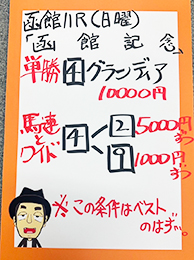 函館11R(日曜)
「函館記念」
単勝 4 グランディア
10000円
馬連とワイド 4 2 5000円ずつ
9 1000円ずつ
※この条件はベスト
のはず…。